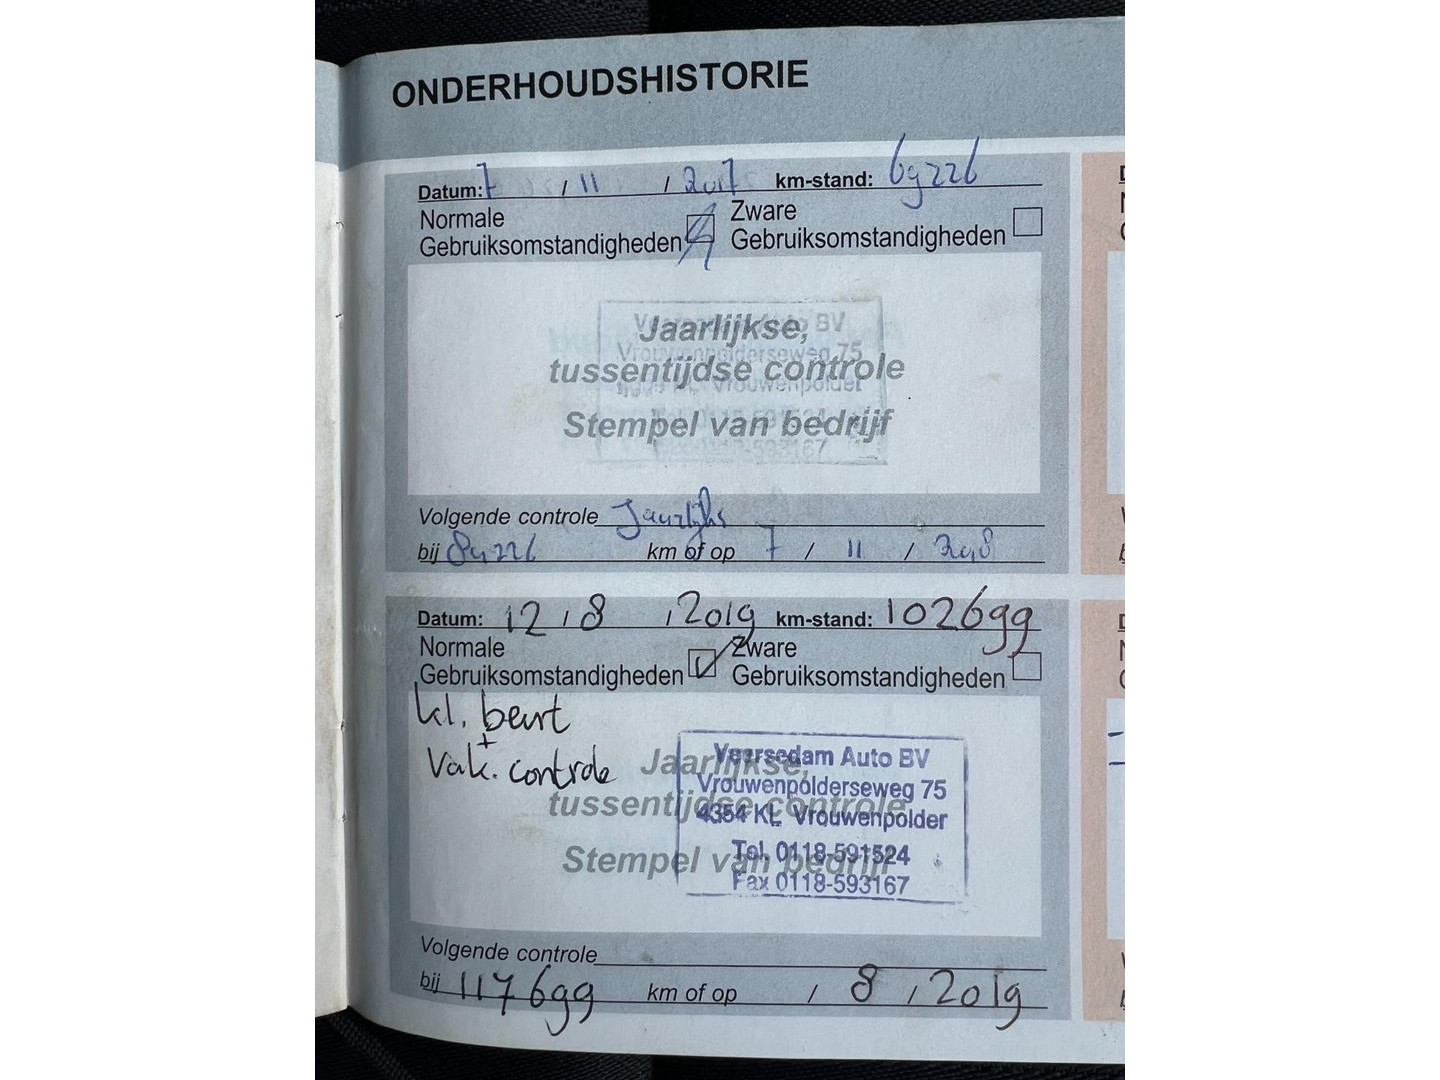 ONDERHOUDSHISTORIE
Datum: 7 / 11 / 2017 km-stand: 69226
Normale Gebruiksomstandigheden Zware Gebruiksomstandigheden
Veersedam Auto BV
Jaarlijkse,
Vrouwenpolderseweg 75
tussentijdse controle
Vrouwenpolder
Stempel van bedrijf
Volgende controle Jaarlijks
bij 89226 km of op 7 / 11 / 2018
Datum: 12 / 8 / 2019 km-stand: 102699
Normale Gebruiksomstandigheden Zware Gebruiksomstandigheden
kl. beurt
+
vak. controle
Jaarlijkse,
tussentijdse controle
Stempel van bedrijf
Veersedam Auto BV
Vrouwenpolderseweg 75
4354 KL Vrouwenpolder
Tel. 0118-591524
Fax 0118-593167
Volgende controle
bij 117699 km of op / 8 / 2019